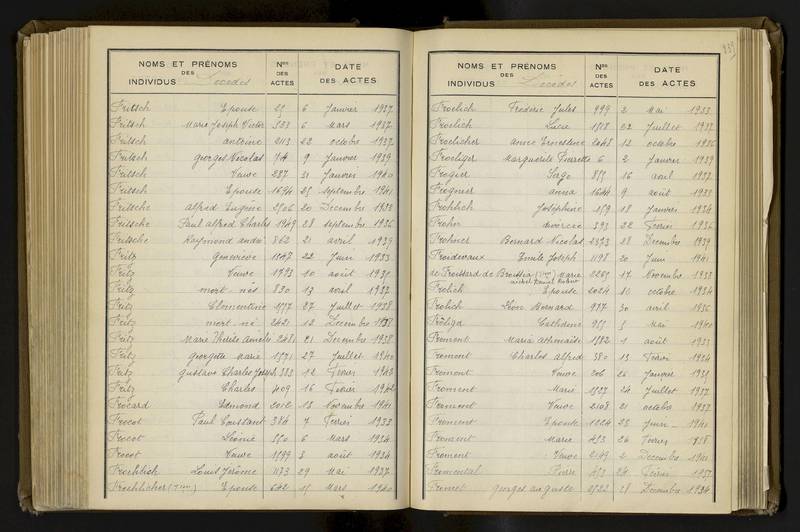 NOMS ET PRÉNOMS
DES
INDIVIDUS Décédés
Nos
DES
ACTES
DATE
DES ACTES
Fritsch Epouse 6 Janvier 1937
Fritsch Marie Joseph Victor 553 6 Mars 1937
Fritsch antoine 2113 22 octobre 1937
Fritsch georges Nicolas 9 Janvier 1939
Fritsch Veuve 287 31 Janvier 1940
Fritsch Epouse 1694 25 septembre 1941
Fritsche alfred Eugène 2506 20 Décembre 1933
Fritsche Paul alfred Charles 1949 28 septembre 1936
Fritsche Raymond andré 862 21 avril 1939
Fritz Geneviève 1147 22 Juin 1933
Fritz Veuve 1793 10 août 1935
Fritz mort-né 830 13 avril 1937
Fritz Clementine 27 Juillet 1938
Fritz mort-né 2421 12 Decembre 1938
Fritz Marie Thérèse Amélie 2481 21 Decembre 1938
Fritz georgette Marie 1571 27 Juillet 1940
Fritz gustave Charles Joseph 383 12 Février 1943
Fritz Charles 409 16 Février 1942
Frocard Edmond 2012 13 Novembre 1941
Frocot Paul Constant 384 7 Février 1933
Frocot Léonie 550 6 Mars 1934
Frocot Veuve 1599 3 août 1934
Froehlich Louis Jérôme 1173 29 Mai 1937
Froehlicher Epouse 642 15 Mars 1940
239
NOMS ET PRÉNOMS
DES
INDIVIDUS Décédés
Nos
DES
ACTES
DATE
DES ACTES
Froelich Frédéric Jules 999 2 Mai 1933
Froelich Lucie 1508 22 Juillet 1937
Froelicher anne Ernestine 2048 12 octobre 1936
Froeliger Marguerite Pierrette 6 2 Janvier 1939
Frogier Serge 855 16 avril 1937
Frogner anna 1644 9 août 1933
Frohlich Joséphine 159 18 Janvier 1934
Frohn divorcée 393 22 Février 1936
Frohner Bernard Nicolas 2373 28 Decembre 1939
Froidevaux Emile Joseph 1198 20 Juin 1941
de Froissard de Broissia Marie 2265 17 Novembre 1938
Frolich Epouse 2024 10 octobre 1934
Frolich Léon Bernard 977 30 avril 1936
Catherine 955 5 Mai 1940
Froment Marie 1582 1 août 1933
Froment Charles alfred 380 13 Février 1934
Froment Veuve 206 Janvier
Froment Marie 1527 24 Juillet 1937
Froment Veuve 2108 21 octobre 1937
Froment Epouse 1224 25 Juin 1941
Froment Marie 453 24 Février
Froment Veuve 2149 2 Decembre 1941
Fromental Pierre 453 24 Février
Fromet georges auguste 28 Decembre 1934